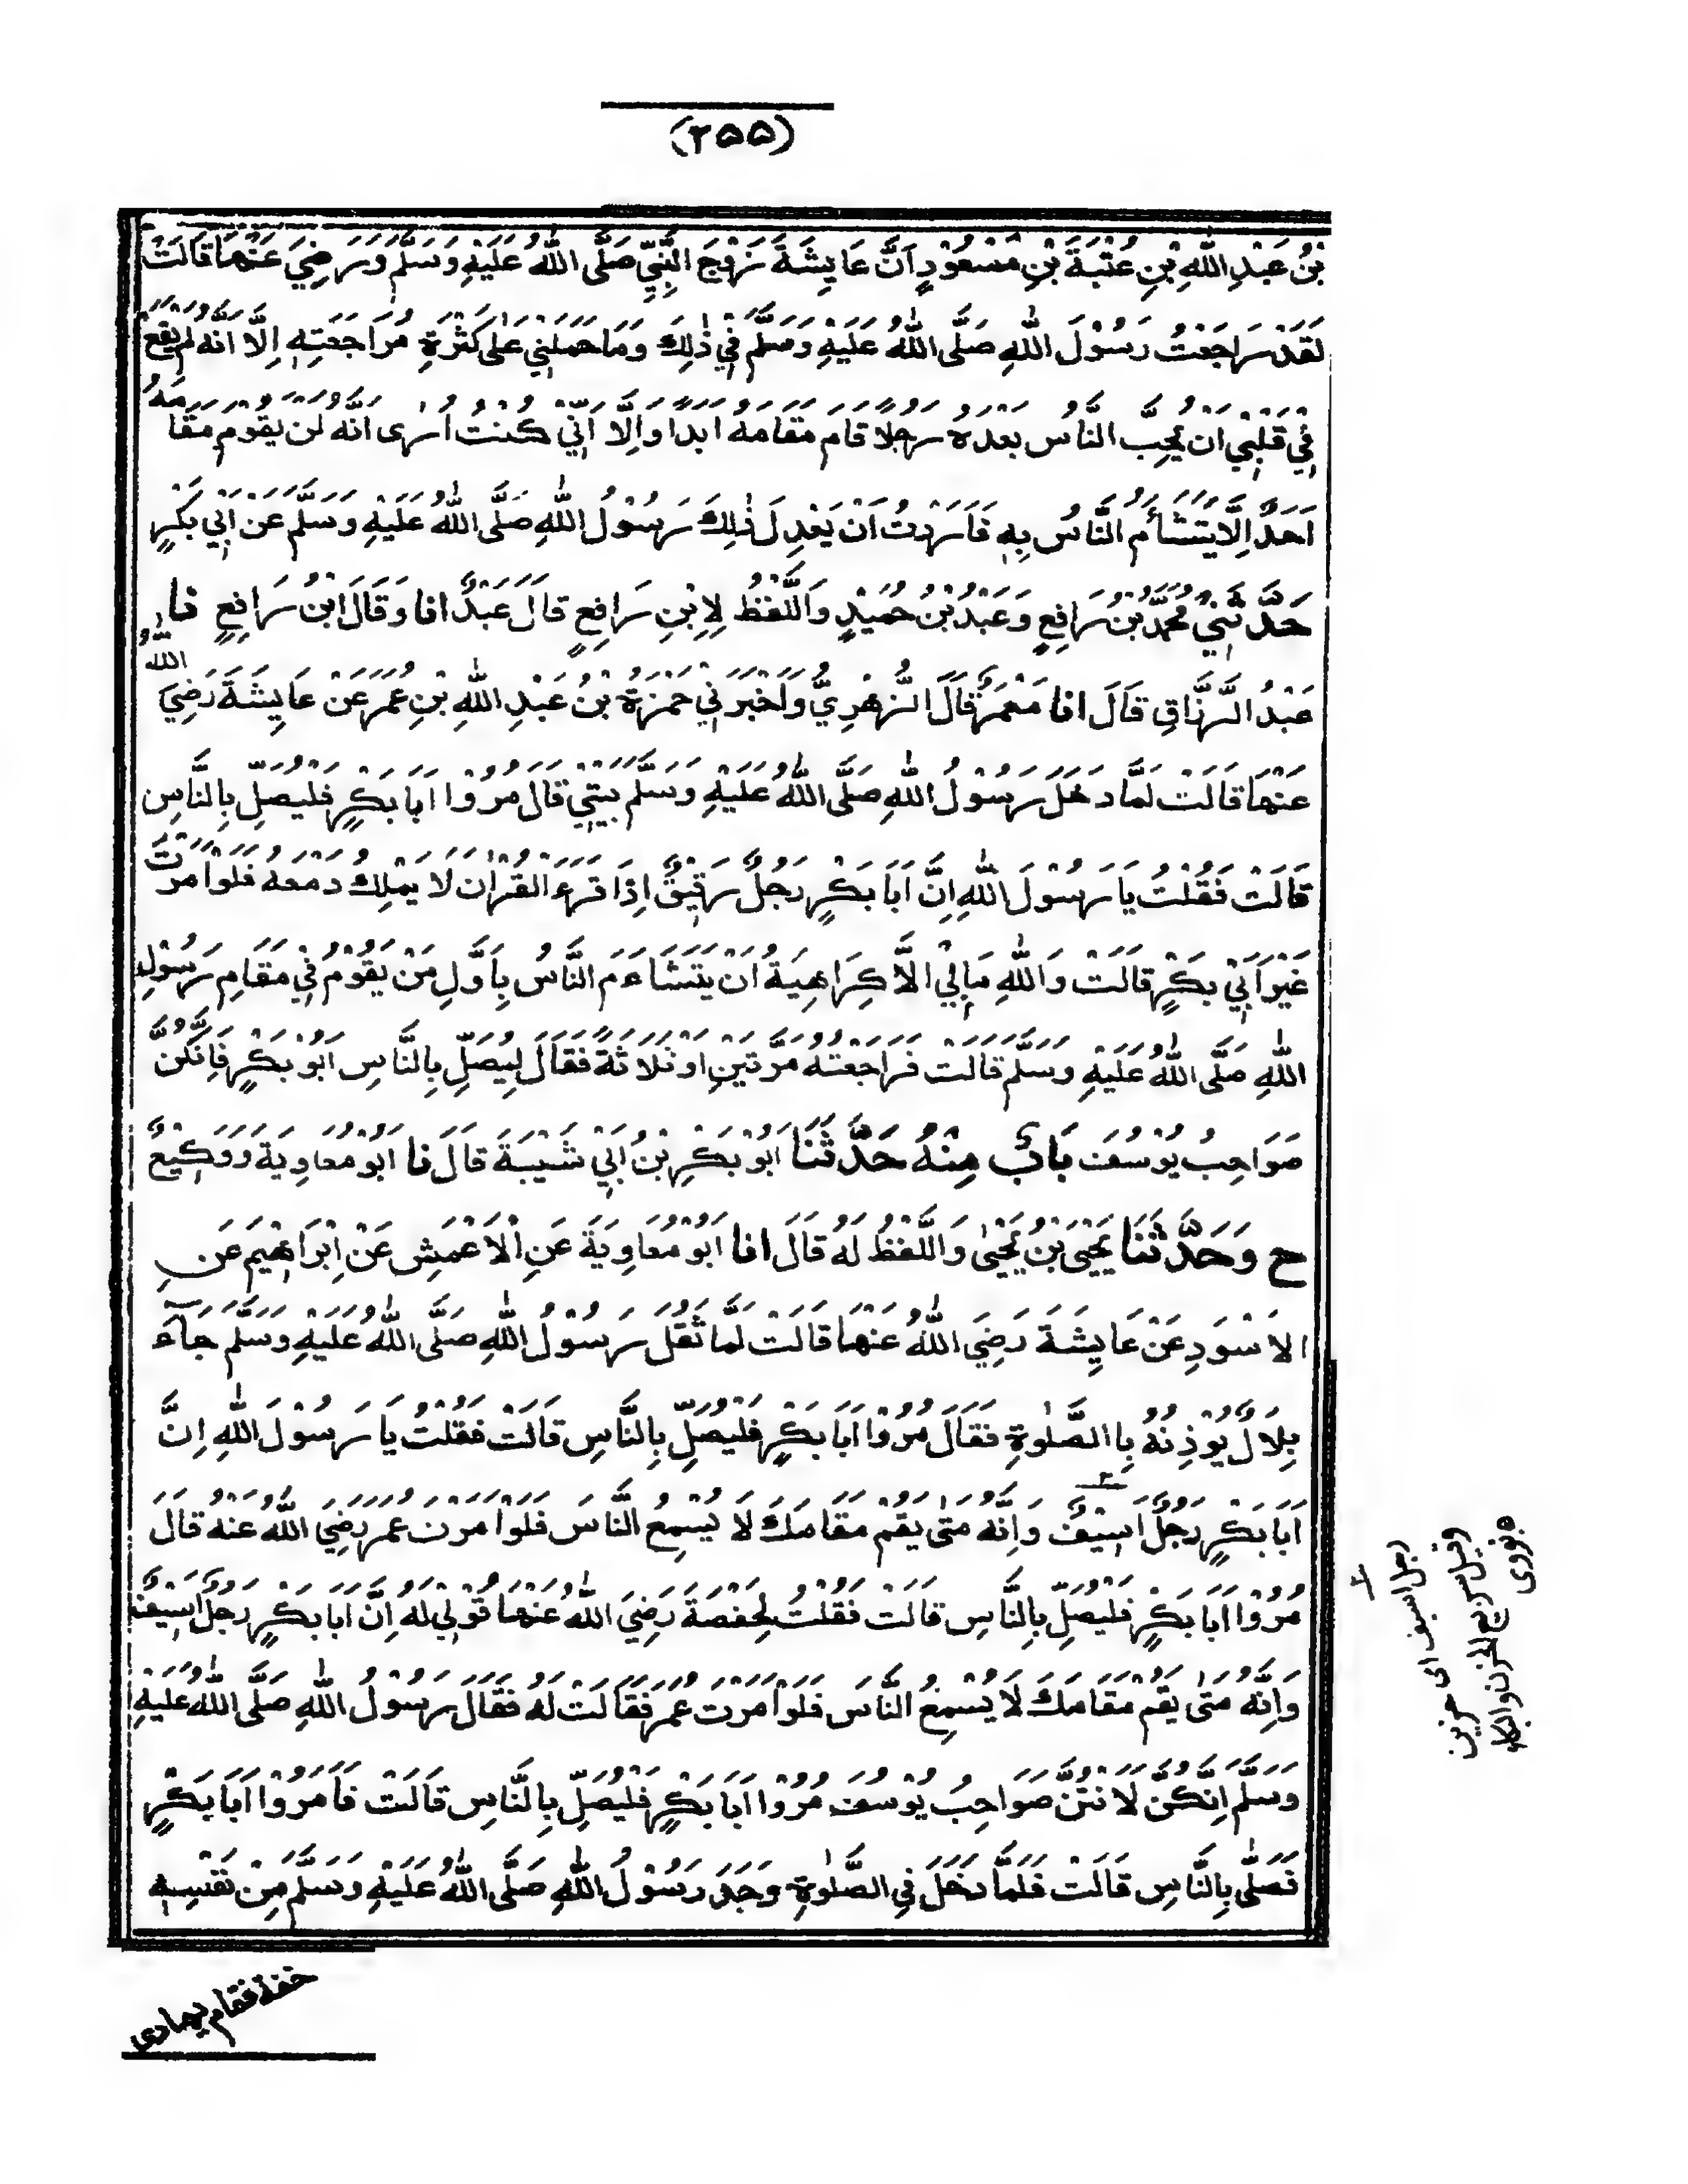 (٢٥٥)
بْنُ عَبْدِ اللّٰهِ بْنِ عُتْبَةَ بْنِ مَسْعُوْدٍ اَنَّ عَايِشَةَ زَوْجَ النَّبِيِّ صَلَّى اللّٰهُ عَلَيْهِ وَسَلَّمَ وَرَضِيَ عَنْهَا قَالَتْ
لَقَدْ رَاجَعْتُ رَسُوْلَ اللّٰهِ صَلَّى اللّٰهُ عَلَيْهِ وَسَلَّمَ فِيْ ذٰلِكَ وَمَا حَمَلَنِيْ عَلٰى كَثْرَةِ مُرَاجَعَتِهٖ اِلَّا اَنَّهُ لَمْ يَقَعْ
فِيْ قَلْبِيْ اَنْ يُحِبَّ النَّاسُ بَعْدَهُ رَجُلًا قَامَ مَقَامَهُ اَبَدًا وَاِلَّا اَنِّيْ كُنْتُ اُرٰى اَنَّهُ لَنْ يَقُوْمَ مَقَامَهُ
اَحَدٌ اِلَّا يَتَشَأَّمُ النَّاسُ بِهٖ فَاَرَدْتُ اَنْ يَعْدِلَ ذٰلِكَ رَسُوْلُ اللّٰهِ صَلَّى اللّٰهُ عَلَيْهِ وَسَلَّمَ عَنْ اَبِيْ بَكْرٍ
حَدَّثَنِيْ مُحَمَّدُ بْنُ رَافِعٍ وَعَبْدُ بْنُ حُمَيْدٍ وَاللَّفْظُ لِاِبْنِ رَافِعٍ قَالَ عَبْدٌ انا وَقَالَ ابْنُ رَافِعٍ نا
عَبْدُ الرَّزَّاقِ قَالَ انا مَعْمَرٌ قَالَ الزُّهْرِيُّ وَاَخْبَرَنِيْ حَمْزَةُ بْنُ عَبْدِ اللّٰهِ بْنِ عُمَرَ عَنْ عَايِشَةَ رَضِيَ اللّٰهُ
عَنْهَا قَالَتْ لَمَّا دَخَلَ رَسُوْلُ اللّٰهِ صَلَّى اللّٰهُ عَلَيْهِ وَسَلَّمَ بَيْتِيْ قَالَ مُرُوْا اَبَا بَكْرٍ فَلْيُصَلِّ بِالنَّاسِ
قَالَتْ فَقُلْتُ يَا رَسُوْلَ اللّٰهِ اِنَّ اَبَا بَكْرٍ رَجُلٌ رَقِيْقٌ اِذَا قَرَءَ الْقُرْاٰنَ لَا يَمْلِكُ دَمْعَهُ فَلَوْ اَمَرْتَ
غَيْرَ اَبِيْ بَكْرٍ قَالَتْ وَاللّٰهِ مَا بِيْ اِلَّا كِرَاهِيَةُ اَنْ يَتَشَاءَمَ النَّاسُ بِاَوَّلِ مَنْ يَقُوْمُ فِيْ مَقَامِ رَسُوْلِ
اللّٰهِ صَلَّى اللّٰهُ عَلَيْهِ وَسَلَّمَ قَالَتْ فَرَاجَعْتُهُ مَرَّتَيْنِ اَوْ ثَلَاثَةً فَقَالَ لِيُصَلِّ بِالنَّاسِ اَبُوْ بَكْرٍ فَاِنَّكُنَّ
صَوَاحِبُ يُوْسُفَ بَابٌ مِنْهُ حَدَّثَنَا اَبُوْ بَكْرِ بْنُ اَبِيْ شَيْبَةَ قَالَ نا اَبُوْ مُعَاوِيَةَ وَوَكِيْعٌ
ح وَحَدَّثَنَا يَحْيَى بْنُ يَحْيٰى وَاللَّفْظُ لَهُ قَالَ انا اَبُوْ مُعَاوِيَةَ عَنِ الْاَعْمَشِ عَنْ اِبْرَاهِيْمَ عَنِ
الْاَسْوَدِ عَنْ عَايِشَةَ رَضِيَ اللّٰهُ عَنْهَا قَالَتْ لَمَّا ثَقُلَ رَسُوْلُ اللّٰهِ صَلَّى اللّٰهُ عَلَيْهِ وَسَلَّمَ جَآءَ
بِلَالٌ يُوْذِنُهُ بِالصَّلٰوةِ فَقَالَ مُرُوْا اَبَا بَكْرٍ فَلْيُصَلِّ بِالنَّاسِ قَالَتْ فَقُلْتُ يَا رَسُوْلَ اللّٰهِ اِنَّ
اَبَا بَكْرٍ رَجُلٌ اَسِيْفٌ وَاِنَّهُ مَتٰى يَقُمْ مَقَامَكَ لَا يُسْمِعُ النَّاسَ فَلَوْ اَمَرْتَ عُمَرَ رَضِيَ اللّٰهُ عَنْهُ قَالَ
مُرُوْا اَبَا بَكْرٍ فَلْيُصَلِّ بِالنَّاسِ قَالَتْ فَقُلْتُ لِحَفْصَةَ رَضِيَ اللّٰهُ عَنْهَا قُوْلِيْ لَهُ اِنَّ اَبَا بَكْرٍ رَجُلٌ اَسِيْفٌ
وَاِنَّهُ مَتٰى يَقُمْ مَقَامَكَ لَا يُسْمِعُ النَّاسَ فَلَوْ اَمَرْتَ عُمَرَ فَقَالَتْ لَهُ فَقَالَ رَسُوْلُ اللّٰهِ صَلَّى اللّٰهُ عَلَيْهِ
وَسَلَّمَ اِنَّكُنَّ لَاَنْتُنَّ صَوَاحِبُ يُوْسُفَ مُرُوْا اَبَا بَكْرٍ فَلْيُصَلِّ بِالنَّاسِ قَالَتْ فَاَمَرُوْا اَبَا بَكْرٍ
فَصَلّٰى بِالنَّاسِ قَالَتْ فَلَمَّا دَخَلَ فِي الصَّلٰوةِ وَجَدَ رَسُوْلُ اللّٰهِ صَلَّى اللّٰهُ عَلَيْهِ وَسَلَّمَ مِنْ نَفْسِهٖ
رجل اسيف اى حزين
وقيل سريع الحزن والبكاء
نووى
خفة فقام يهادى